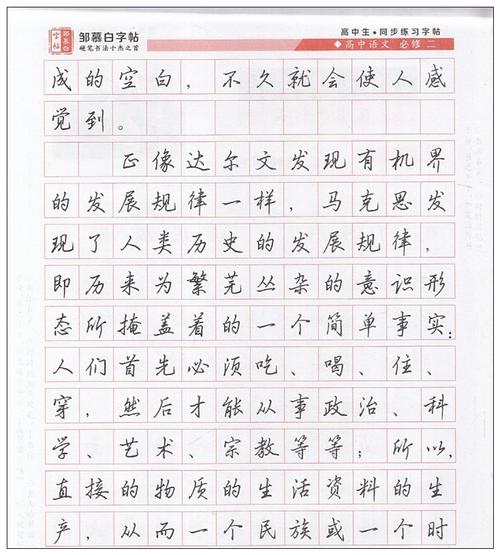 邹慕白字帖
硬笔书法十杰之首
高中生·同步练习字帖
高中语文 必修 二
成的空白，不久就会使人感
觉到。
正像达尔文发现有机界
的发展规律一样，马克思发
现了人类历史的发展规律，
即历来为繁芜丛杂的意识形
态所掩盖着的一个简单事实：
人们首先必须吃、喝、住、
穿，然后才能从事政治、科
学、艺术、宗教等等；所以，
直接的物质的生活资料的生
产，从而一个民族或一个时